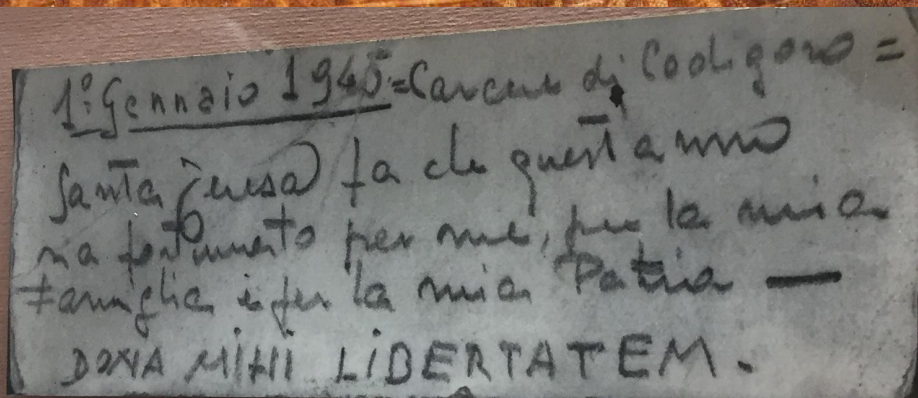 1º Gennaio 1945=Carcere di Codigoro=
Santa Teresa fa che quest'anno
sia fortunato per me, per la mia
famiglia e per la mia Patria —
DONA MIHI LIBERTATEM.